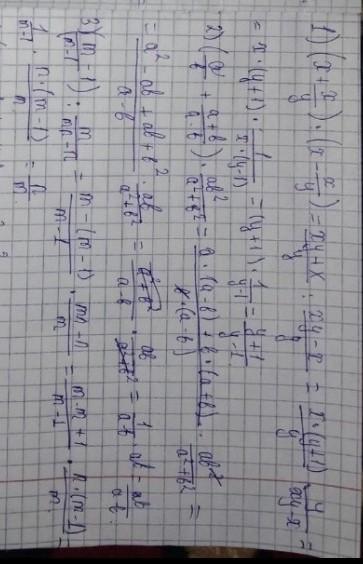 1) (x + x/y) : (x - x/y) = xy+x/y : xy-x/y = x·(y+1)/y · y/xy-x =
= x·(y+1) · 1/x·(y-1) = (y+1) · 1/y-1 = y+1/y-1
2) (a/b + a+b/a-b) · ab²/a²+b² = a·(a-b)+b·(a+b)/b·(a-b) · ab²/a²+b² =
= a²-ab+ab+b²/a-b · ab/a²+b² = a²+b²/a-b · ab/a²+b² = 1/a-b · ab = ab/a-b
3) (m/m-1 - 1) : m/mn-n = m-(m-1)/m-1 · mn-n/m = m-m+1/m-1 · n·(m-1)/m =
1/m-1 · n·(m-1)/m = n/m